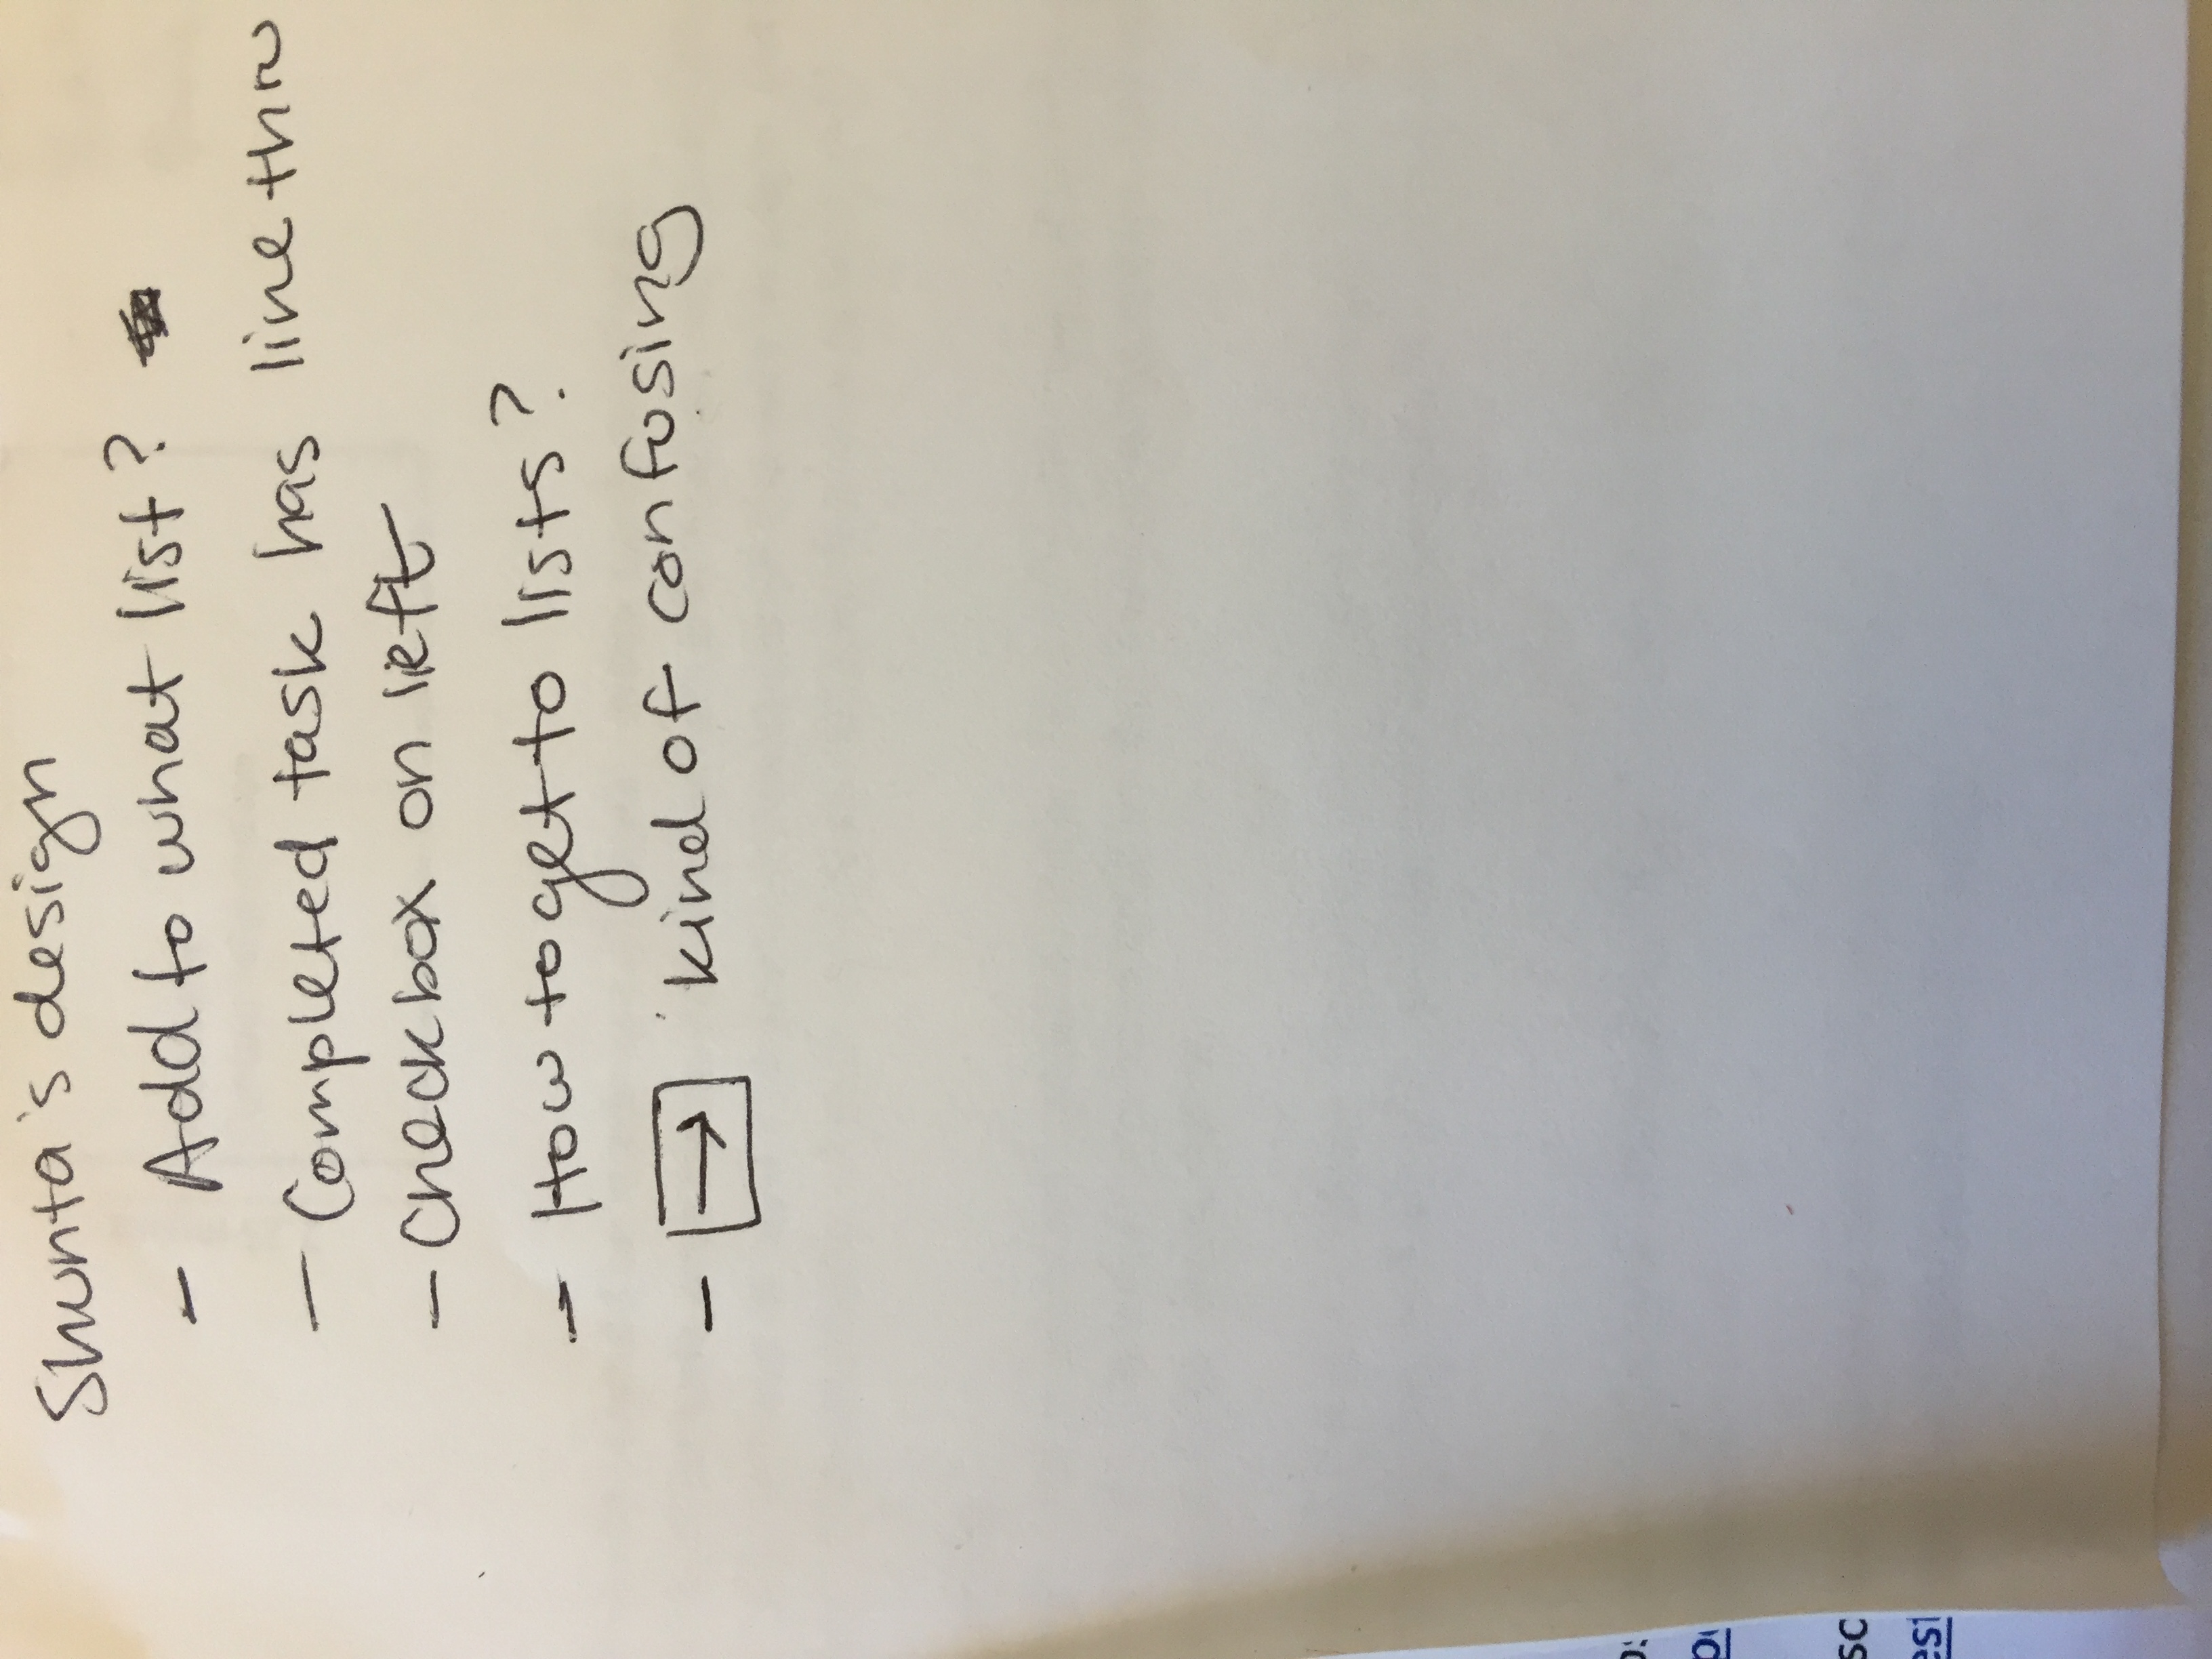 Shunta's design
- Add to what list?
- Completed task has line thru
- Checkbox on left
- How to get to lists?
- → kind of confusing